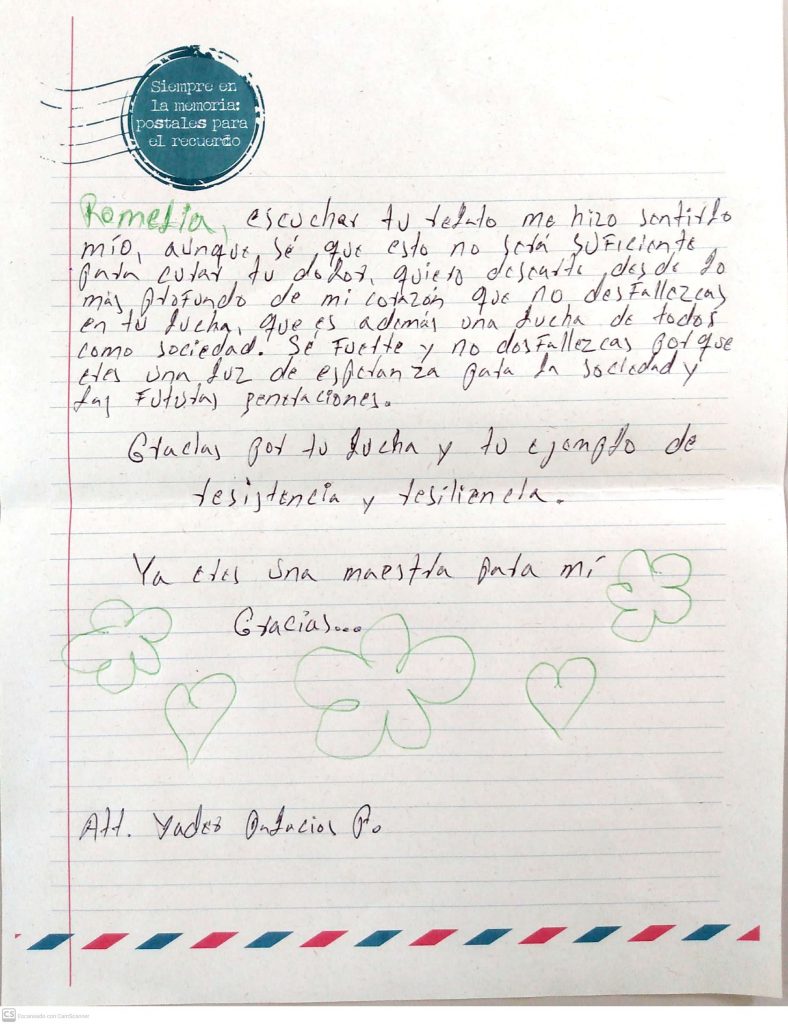 Siempre en
la memoria:
postales para
el recuerdo
Romelia, escuchar tu relato me hizo sentirlo
mío, aunque sé que esto no será suficiente
para curar tu dolor, quiero desearte desde lo
más profundo de mi corazón que no desfallezcas
en tu lucha, que es además una lucha de todos
como sociedad. Sé fuerte y no desfallezcas porque
eres una luz de esperanza para la sociedad y
las futuras generaciones.
Gracias por tu lucha y tu ejemplo de
resistencia y resiliencia.
Ya eres una maestra para mí
Gracias...
Att. Palacios P.
CS Escaneado con CamScanner